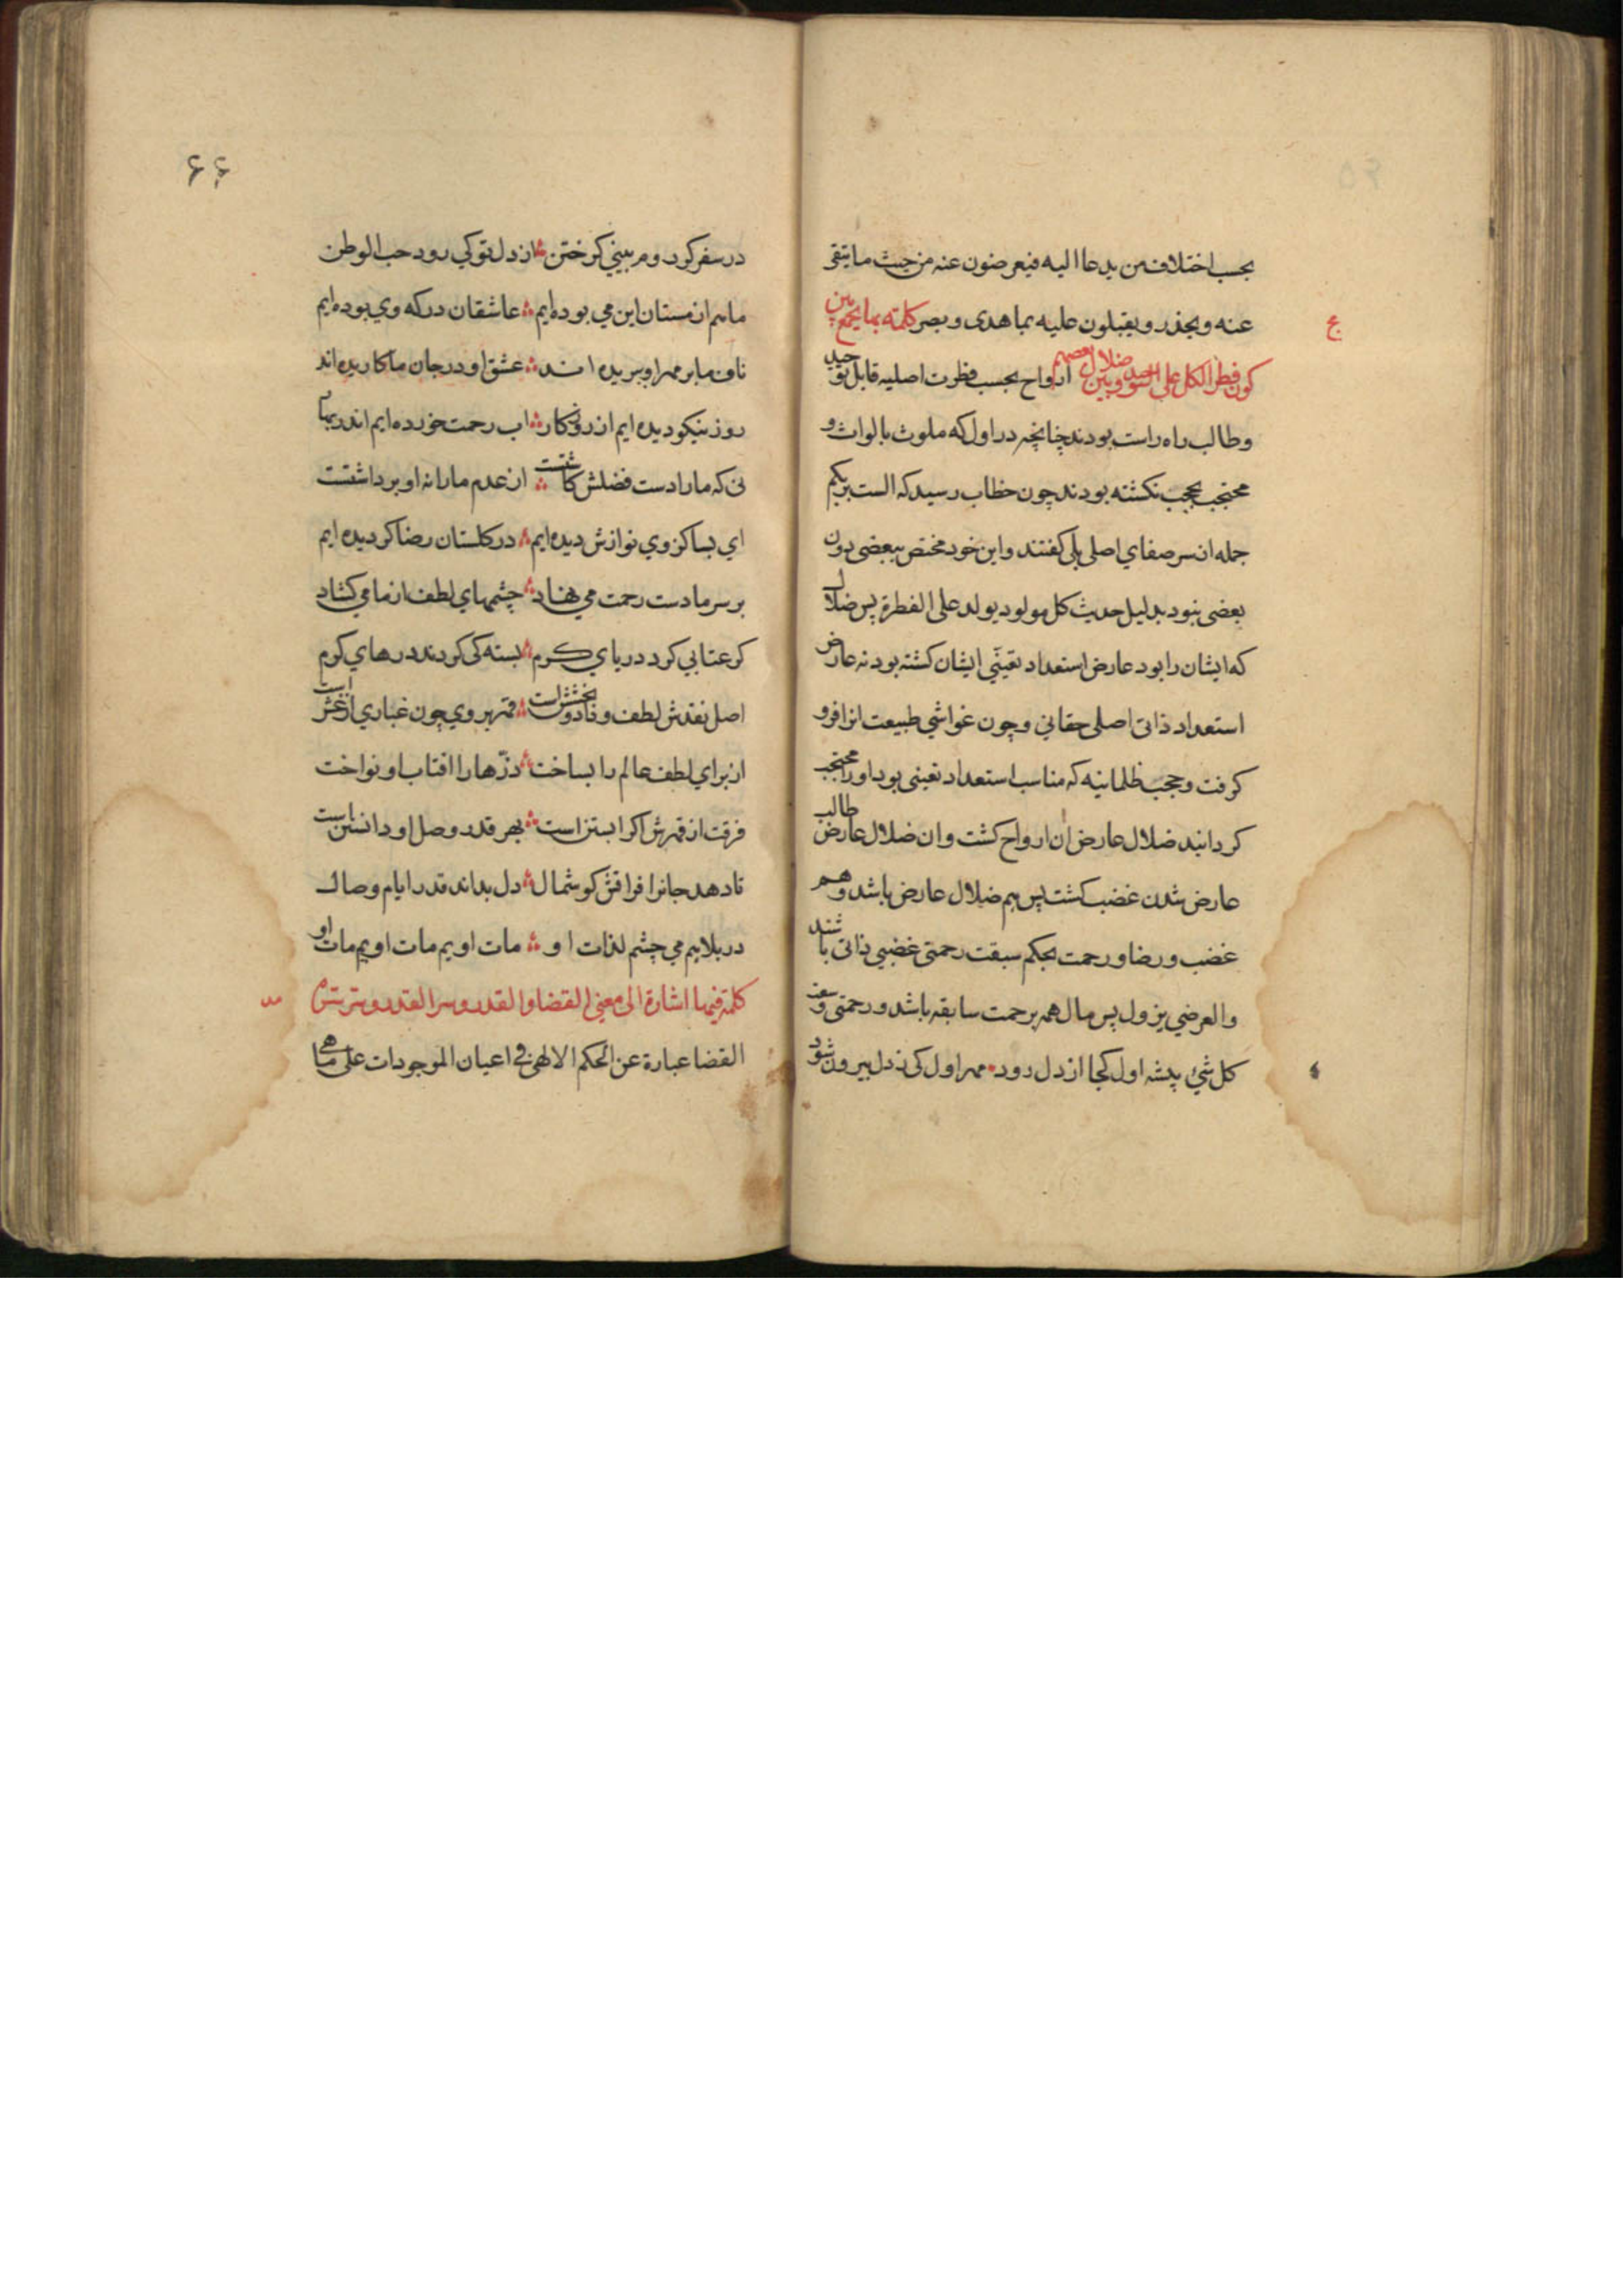 بحسب اختلاف من يدعا اليه فيعرضون عنه من حيث ما يتقى
عنه ويحذر ويقبلون عليه بما هدى وبصر كلمة بما يجمع بين
كون فطر الكل على التوحيد وبين ضلال بعضهم ارواح بحسب فطرت اصليه قابل توحيد
وطالب راه راست بودند چنانچه در اول كه ملوث بالواث و
محتجب بحجب نكشته بودند چون خطاب رسيد كه الست بربكم
جمله از سر صفاي اصلى بلى كفتند واين خود مختص ببعضى دون
بعضى نبود بدليل حديث كل مولود يولد على الفطرة پس ضلال
كه ايشان را بود عارض استعداد تعينى ايشان كشته بود نه عارض
استعداد ذاتى اصلى حقانى وچون غواشي طبيعت انرا فرو
كرفت وحجب ظلمانيه كه مناسب استعداد تعينى بود اورا محتجب
كردانيد ضلال عارض ان ارواح كشت وان ضلال عارض طالب
عارض شدن غضب كشت پس هم ضلال عارض باشد وهم
غضب ورضا ورحمت بحكم سبقت رحمتى غضبي ذاتى باشند
والعرضي يزول پس مال همه برحمت سابقه باشد ورحمتى وسعت
كل شيء پيشه اول كجا از دل رود مهر اول كى ز دل بيرون شود
۶۶
در سفر كر روم بيني كر ختن از دل تو كي رود حب الوطن
ما هم از مستان اين مي بوده ايم عاشقان دركه وي بوده ايم
ناف ما بر مهر او ببريده اند عشق او در جان ما كاريده اند
روز نيكو ديده ايم از روزكار اب رحمت خورده ايم اندر بهار
نى كه ما را دست فضلش كاشتست از عدم ما را نه او برداشتست
اي بسا كز وي نوازش ديده ايم در كلستان رضا كرديده ايم
بر سر ما دست رحمت مي نهاد چشمهاي لطف از ما مي كشاد
كر عتابي كرد درياي كرم بسته كى كردند درهاي كرم
اصل نقدش لطف وداد وبخشش است قهر بر وي چون غباري از غش است
از براي لطف عالم را بساخت ذرّها را افتاب او نواخت
فرقت از قهرش اكر ابستن است بهر قدر وصل او دانستن است
تا دهد جانرا فراقش كوشمال دل بداند قدر ايام وصال
در بلا هم مي چشم لذات او مات اويم مات اويم مات او
كلمة فيها اشارة الى معنى القضا والقدر وسر القدر وسر سرّه
القضا عبارة عن الحكم الالهى فى اعيان الموجودات على ما هى